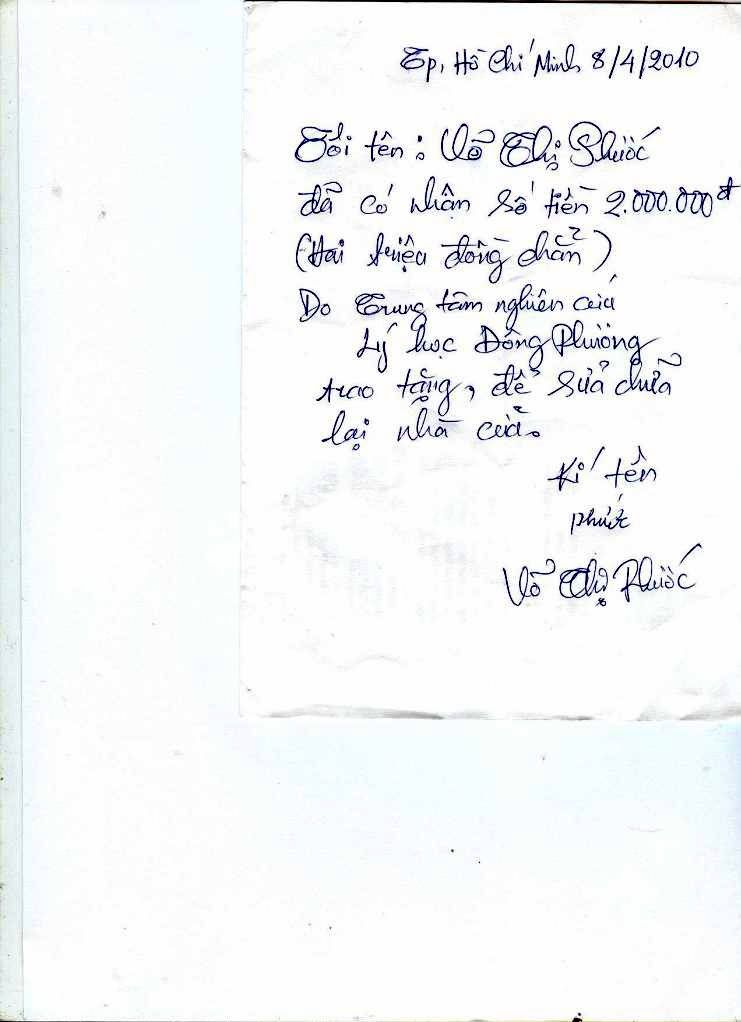 Tp, Hồ Chí Minh 8/4/2010
Tôi tên: Võ Thị Phước
đã có nhận số tiền 2.000.000đ
(Hai triệu đồng chẳn)
Do Trung tâm nghiên cứu
Lý học Đông Phương
trao tặng, để sửa chữa
lại nhà cửa.
Kí tên
Phước
Võ Thị Phước